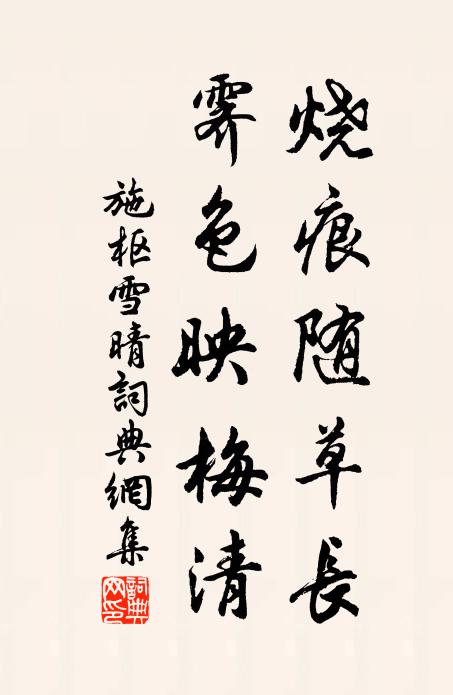 烧痕随草長
霽色映梅清
施枢雪晴詞典網集
詞典网印